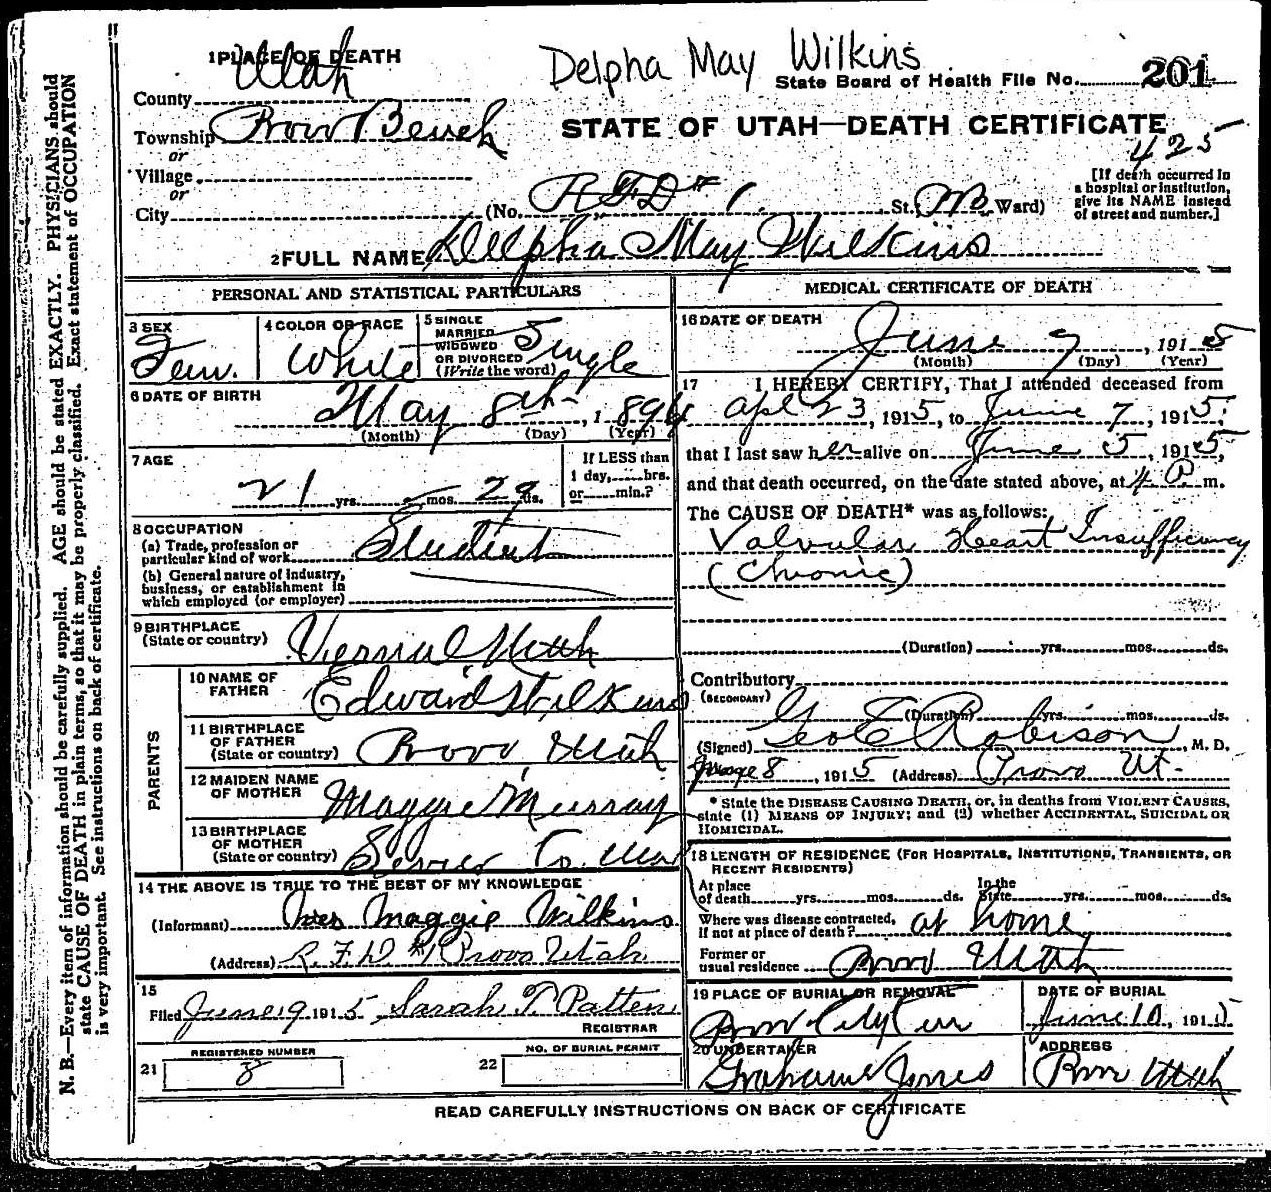 1 PLACE OF DEATH
Utah
Delpha May Wilkins
State Board of Health File No. 201
County
Township Provo Bench
STATE OF UTAH—DEATH CERTIFICATE
or
425
Village
[If death occurred in
a hospital or institution,
give its NAME instead
of street and number.]
or
City (No. R F D # 1. St., Ward)
2 FULL NAME Delpha May Wilkins
PERSONAL AND STATISTICAL PARTICULARS
3 SEX
Fem.
4 COLOR OR RACE
White
5 SINGLE
MARRIED
WIDOWED
OR DIVORCED
(Write the word)
Single
6 DATE OF BIRTH
May 8th, 1894
(Month) (Day) (Year)
7 AGE
21 yrs. mos. 29 ds.
If LESS than
1 day, hrs.
or min.?
8 OCCUPATION
(a) Trade, profession or
particular kind of work Student
(b) General nature of industry,
business, or establishment in
which employed (or employer)
9 BIRTHPLACE
(State or country) Vernal Utah
PARENTS
10 NAME OF
FATHER Edward Wilkins
11 BIRTHPLACE
OF FATHER
(State or country) Provo, Utah
12 MAIDEN NAME
OF MOTHER Maggie Murray
13 BIRTHPLACE
OF MOTHER
(State or country) Sevier Co. Utah
14 THE ABOVE IS TRUE TO THE BEST OF MY KNOWLEDGE
(Informant) Mrs Maggie Wilkins
(Address) R. F. D #1 Provo Utah
15
Filed June 9 1915 Sarah T. Patten
REGISTRAR
21 REGISTERED NUMBER
8
22 NO. OF BURIAL PERMIT
MEDICAL CERTIFICATE OF DEATH
16 DATE OF DEATH
June 7, 1915
(Month) (Day) (Year)
17 I HEREBY CERTIFY, That I attended deceased from
Apl 23, 1915, to June 7, 1915,
that I last saw her alive on June 5, 1915,
and that death occurred, on the date stated above, at 4 P. m.
The CAUSE OF DEATH* was as follows:
Valvular Heart Insufficiency
(Chronic)
(Duration) yrs. mos. ds.
Contributory
(SECONDARY)
(Duration) yrs. mos. ds.
(Signed) Geo E Robison, M. D.
June 8, 1915 (Address) Provo Ut.
* State the DISEASE CAUSING DEATH, or, in deaths from VIOLENT CAUSES,
state (1) MEANS OF INJURY; and (2) whether ACCIDENTAL, SUICIDAL OR
HOMICIDAL.
18 LENGTH OF RESIDENCE (FOR HOSPITALS, INSTITUTIONS, TRANSIENTS, OR
RECENT RESIDENTS)
At place
of death yrs. mos. ds.
In the
State yrs. mos. ds.
Where was disease contracted,
if not at place of death? at home
Former or
usual residence Provo Utah
19 PLACE OF BURIAL OR REMOVAL
Provo City Cem
DATE OF BURIAL
June 10, 1915
20 UNDERTAKER
Graham Jones
ADDRESS
Provo Utah
READ CAREFULLY INSTRUCTIONS ON BACK OF CERTIFICATE
N. B.—Every item of information should be carefully supplied. AGE should be stated EXACTLY. PHYSICIANS should
state CAUSE OF DEATH in plain terms, so that it may be properly classified. Exact statement of OCCUPATION
is very important. See instructions on back of certificate.